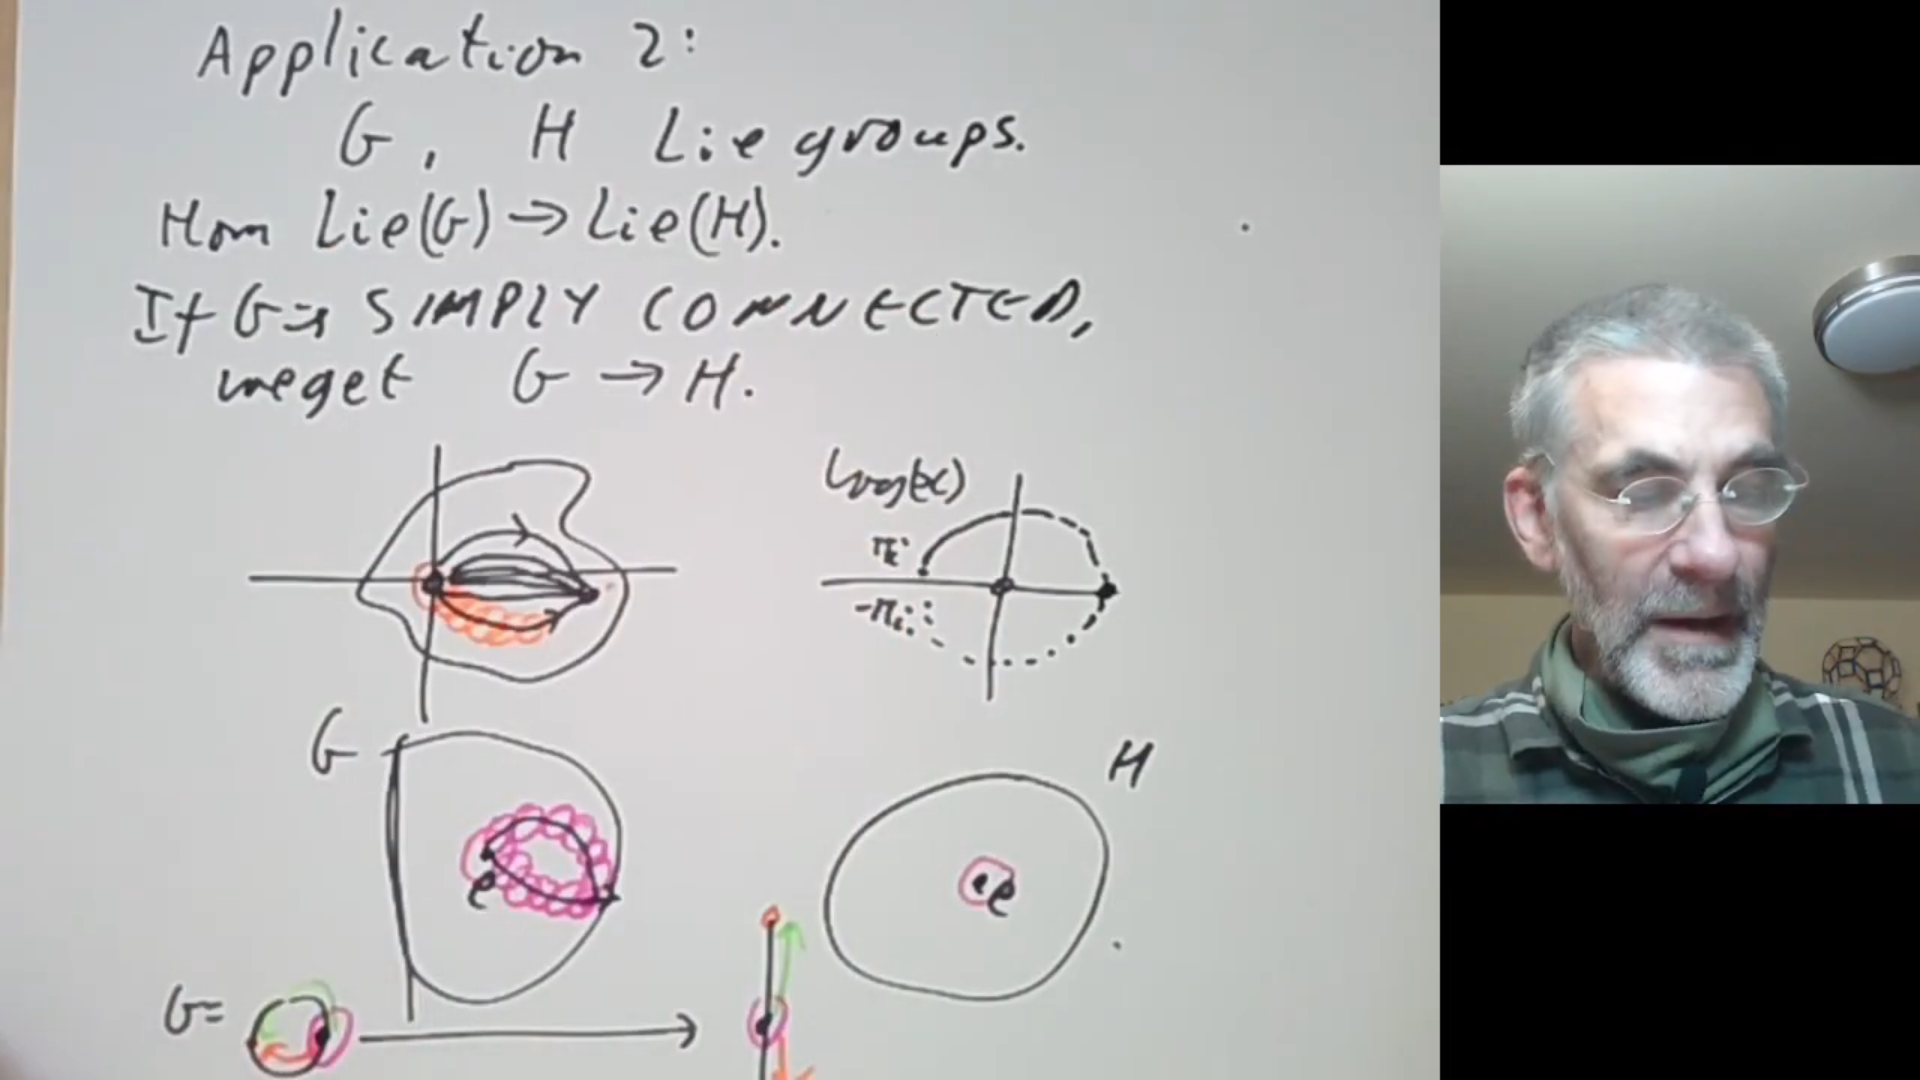 Application 2:
G, H Lie groups.
Hom Lie(G) → Lie(H).
If G is SIMPLY CONNECTED,
we get G → H.
Log(x)
πi
-πi
G
H
e
e
G=